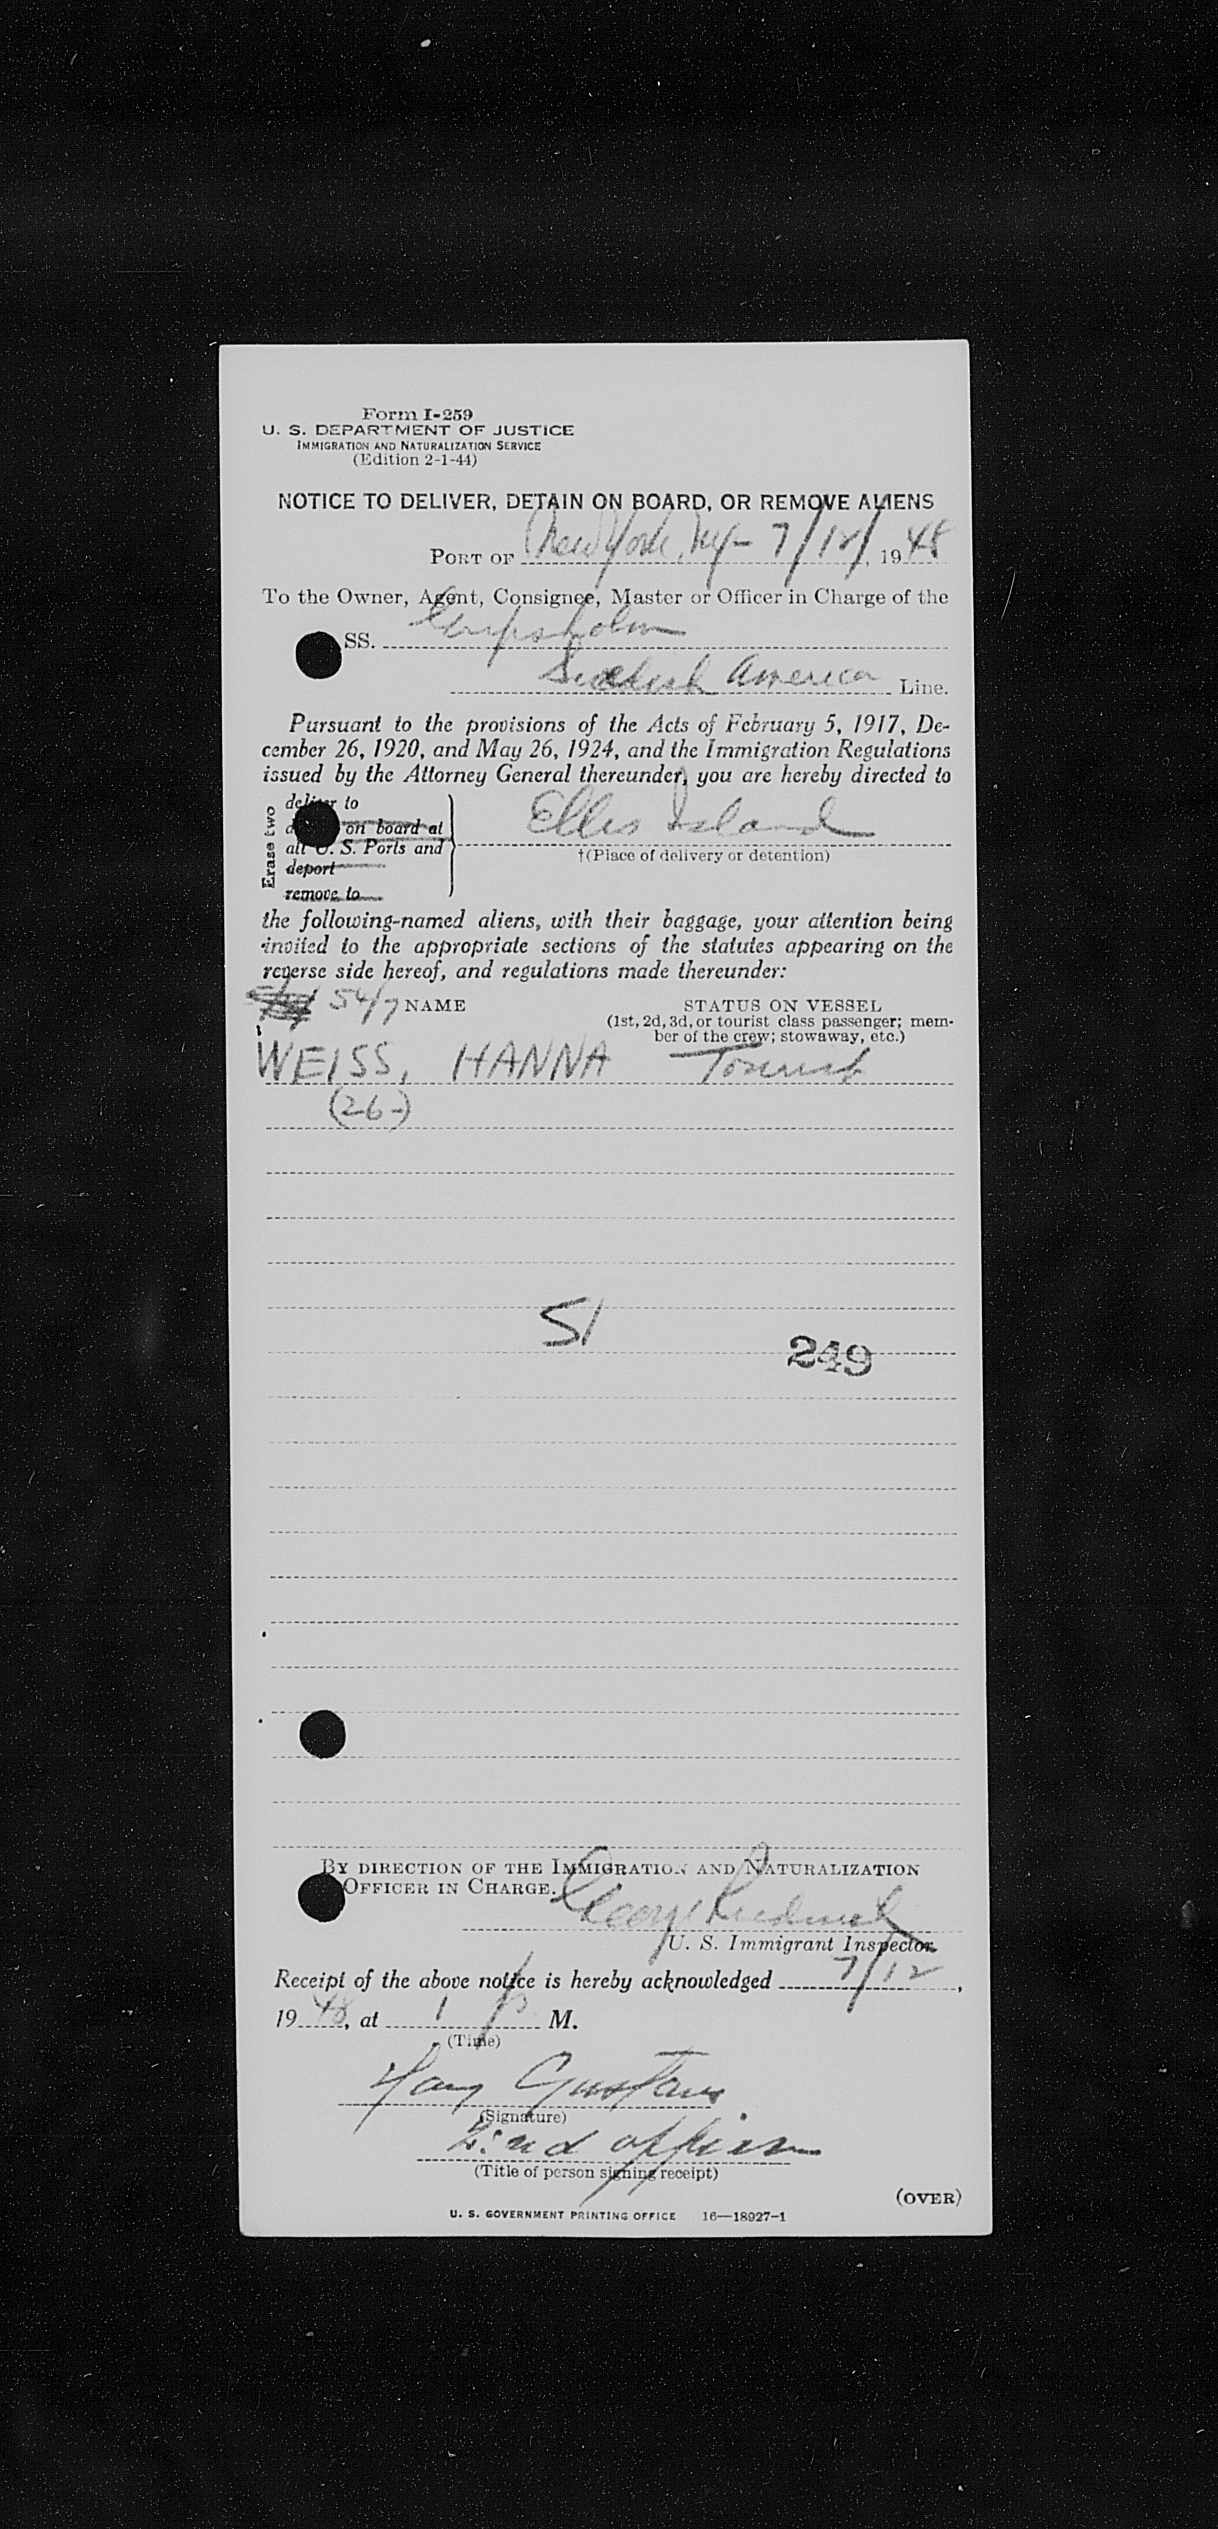 Form I-259
U. S. DEPARTMENT OF JUSTICE
IMMIGRATION AND NATURALIZATION SERVICE
(Edition 2-1-44)
NOTICE TO DELIVER, DETAIN ON BOARD, OR REMOVE ALIENS
PORT OF New York, Ny - 7/12/, 1948
To the Owner, Agent, Consignee, Master or Officer in Charge of the
SS. Gripsholm
Swedish America Line.
Pursuant to the provisions of the Acts of February 5, 1917, De-
cember 26, 1920, and May 26, 1924, and the Immigration Regulations
issued by the Attorney General thereunder, you are hereby directed to
Erase two
deliver to
on board at
all U. S. Ports and
deport
remove to
Ellis Island
†(Place of delivery or detention)
the following-named aliens, with their baggage, your attention being
invited to the appropriate sections of the statutes appearing on the
reverse side hereof, and regulations made thereunder:
54/7 NAME STATUS ON VESSEL
(1st, 2d, 3d, or tourist class passenger; mem-
ber of the crew; stowaway, etc.)
WEISS, HANNA Tourist
(26-)
51
249
BY DIRECTION OF THE IMMIGRATION AND NATURALIZATION
OFFICER IN CHARGE.
George
U. S. Immigrant Inspector
Receipt of the above notice is hereby acknowledged 7/12,
1948, at 1 P M.
(Time)
(Signature)
2:nd officer
(Title of person signing receipt)
(OVER)
U. S. GOVERNMENT PRINTING OFFICE 16—18927-1